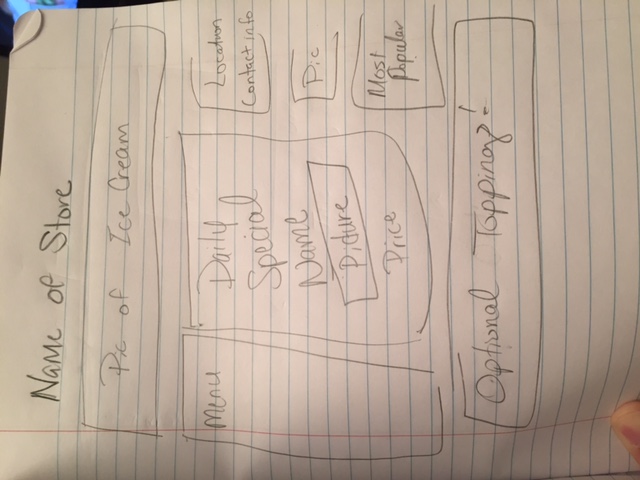 Name of Store
Pic of Ice Cream
Menu
Daily
Special
Name
Picture
Price
Location
Contact info
Pic
Most
Popular
Optional Toppings!